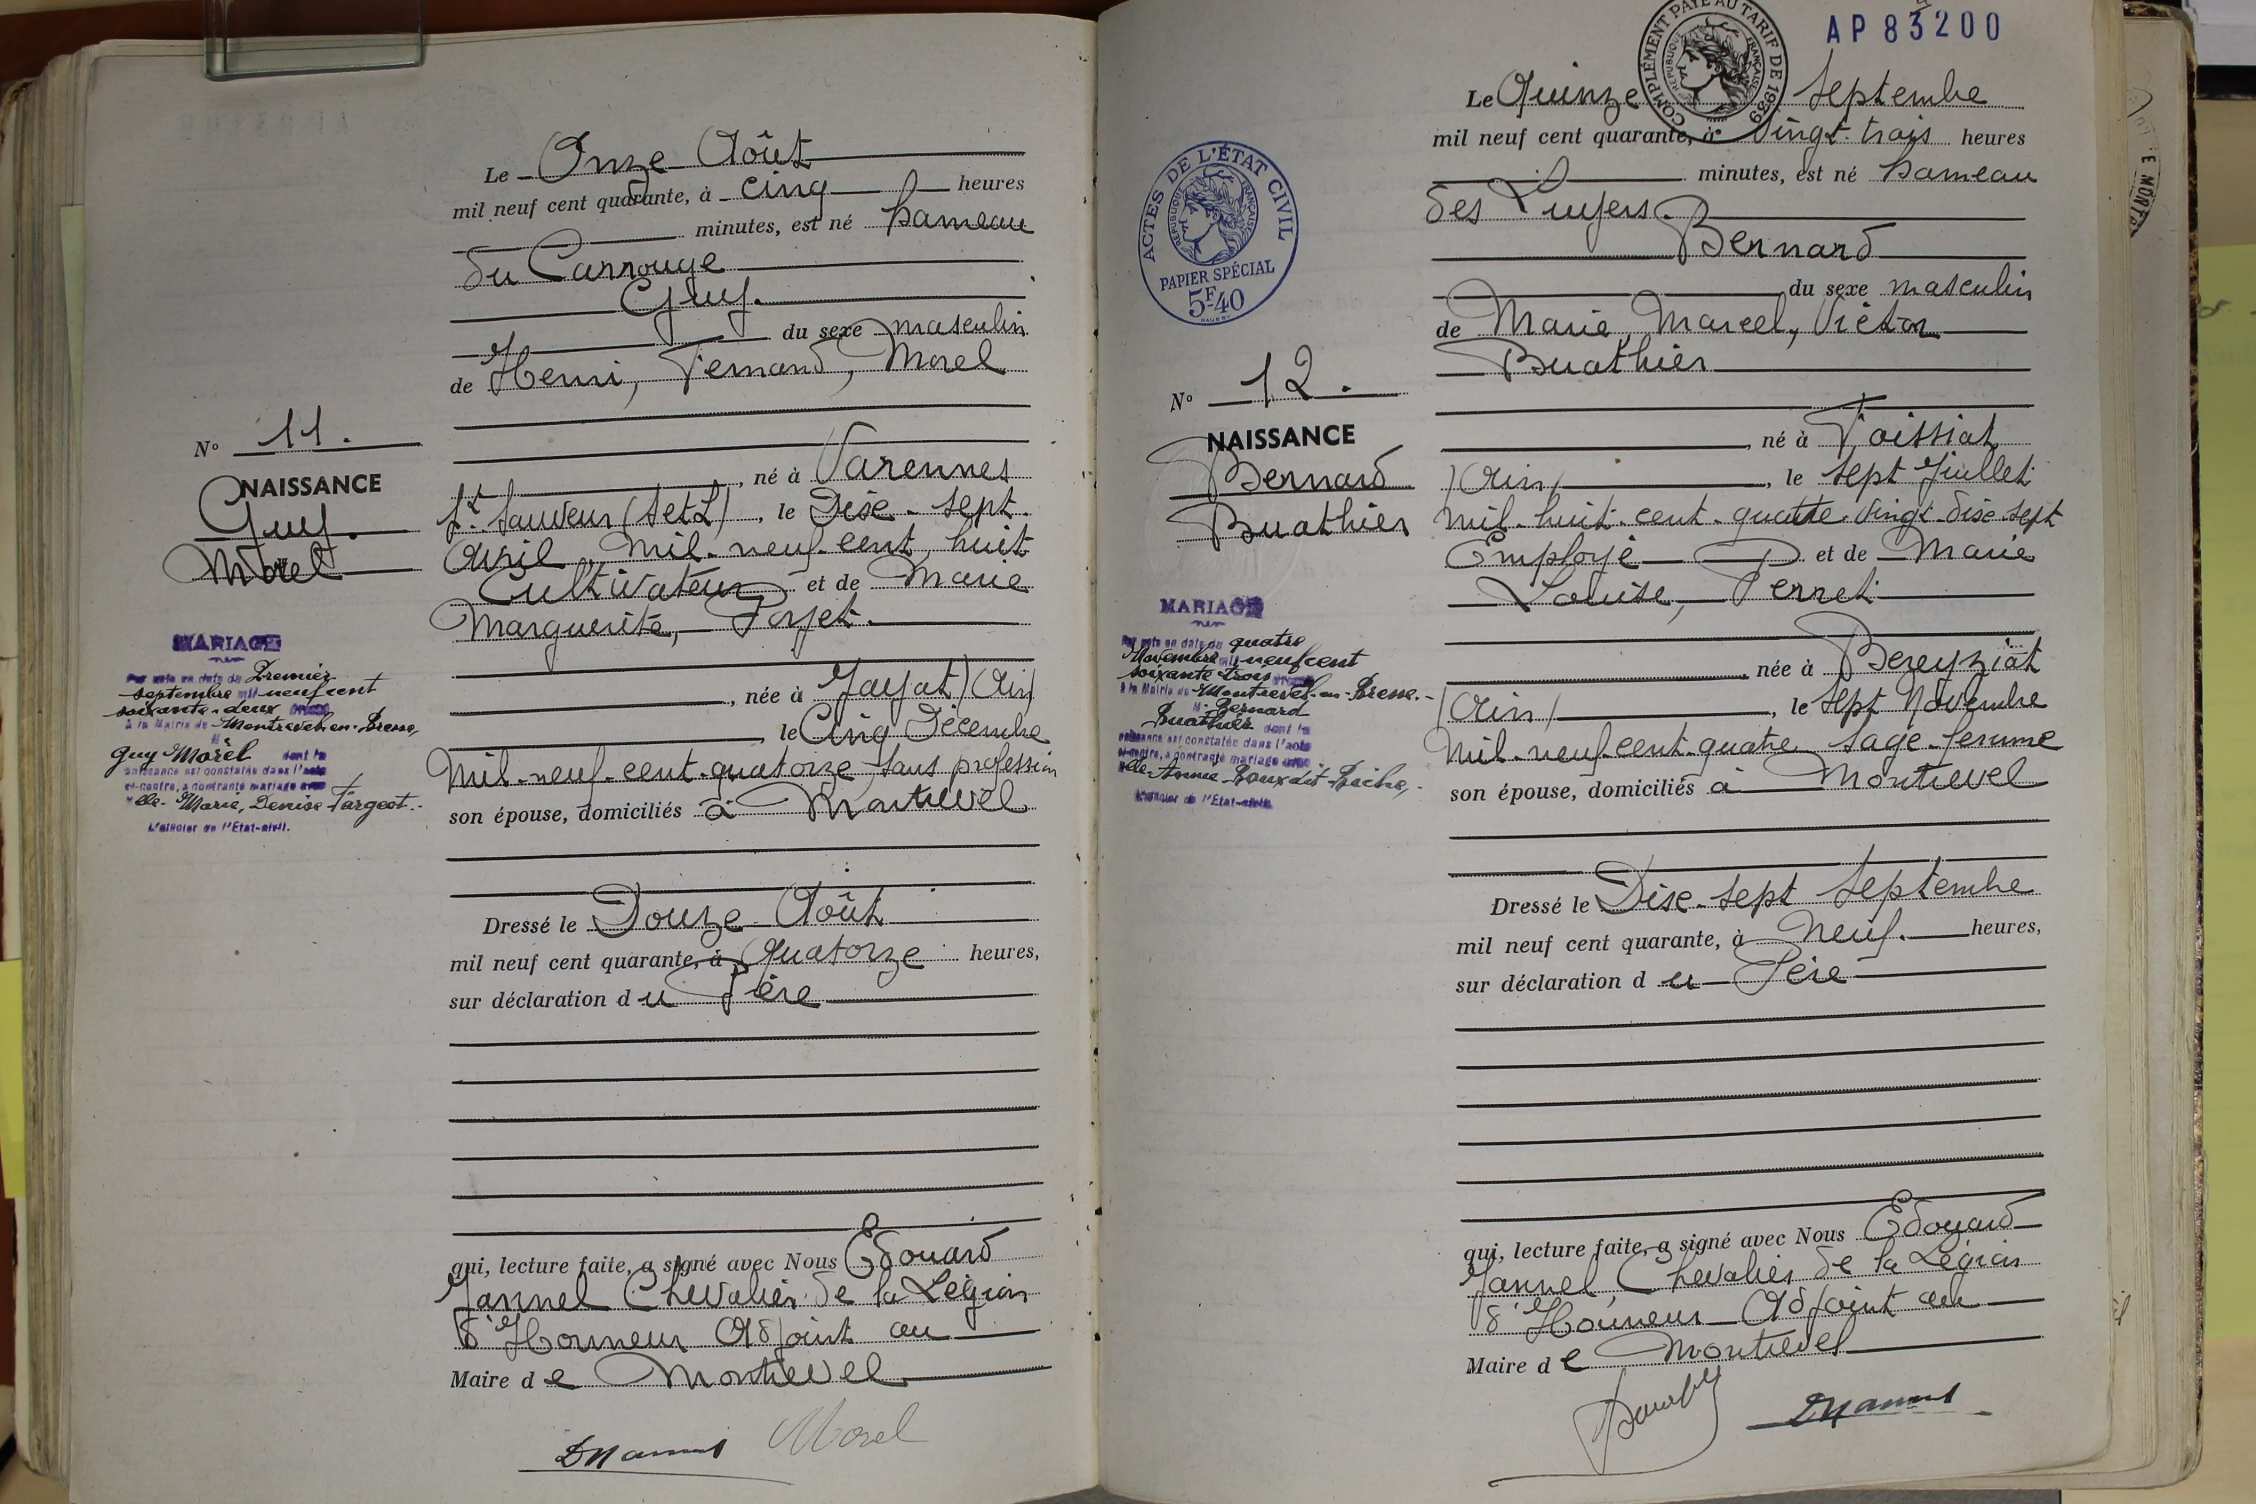 Le Onze Août
mil neuf cent quarante, à cinq heures
minutes, est né hameau
du Carrouge
Guy.
du sexe masculin
de Henri, Fernand, Morel
né à Varennes
St. Sauveur (S et L), le Dix-sept.
Avril Mil-neuf-cent, huit
Cultivateur et de Marie
Marguerite,
née à Jayat (Ain)
le Cinq Décembre
Mil-neuf-cent-quatorze sans profession
son épouse, domiciliés à Montrevel
Dressé le Douze Août
mil neuf cent quarante, à Quatorze heures,
sur déclaration du Père
qui, lecture faite, a signé avec Nous Edouard
Jannel Chevalier de la Légion
d'Honneur Adjoint au
Maire de Montrevel
Morel
N° 11.
NAISSANCE
Guy.
Morel
MARIAGE
Par acte en date du Premier
septembre mil neuf cent
soixante-deux
à la Mairie de Montrevel-en-Bresse,
M.
Guy Morel dont la
naissance est constatée dans l'acte
ci-contre, a contracté mariage avec
Melle. Marie, Denise Fargeot.-
L'officier de l'État-civil.
COMPLÉMENT PAYÉ AU TARIF DE 1939
RÉPUBLIQUE FRANÇAISE
AP 83200
Le Quinze Septembre
mil neuf cent quarante, à Vingt-trois heures
minutes, est né hameau
des Luyers.
Bernard
du sexe masculin
de Marie, Marcel, Victor
Buathier
né à Foissiat
(Ain), le sept Juillet
Mil-huit-cent-quatre-vingt-dix sept
Employé et de Marie
Louise, Perret
née à Bereyziat
(Ain), le sept Novembre
Mil-neuf-cent-quatre sage-femme
son épouse, domiciliés à Montrevel
Dressé le Dix-sept Septembre
mil neuf cent quarante, à Neuf. heures,
sur déclaration du Père
qui, lecture faite, a signé avec Nous Edouard
Jannel, Chevalier de la Légion
d'Honneur Adjoint au
Maire de Montrevel
ACTES DE L'ÉTAT CIVIL
RÉPUBLIQUE FRANÇAISE
PAPIER SPÉCIAL
5F40
N° 12.
NAISSANCE
Bernard
Buathier
MARIAGE
Par acte en date du quatre
Novembre mil neuf cent
soixante trois
à la Mairie de Montrevel-en-Bresse.-
M. Bernard
Buathier dont la
naissance est constatée dans l'acte
ci-contre, a contracté mariage avec
Melle. Annie
L'officier de l'État-civil.